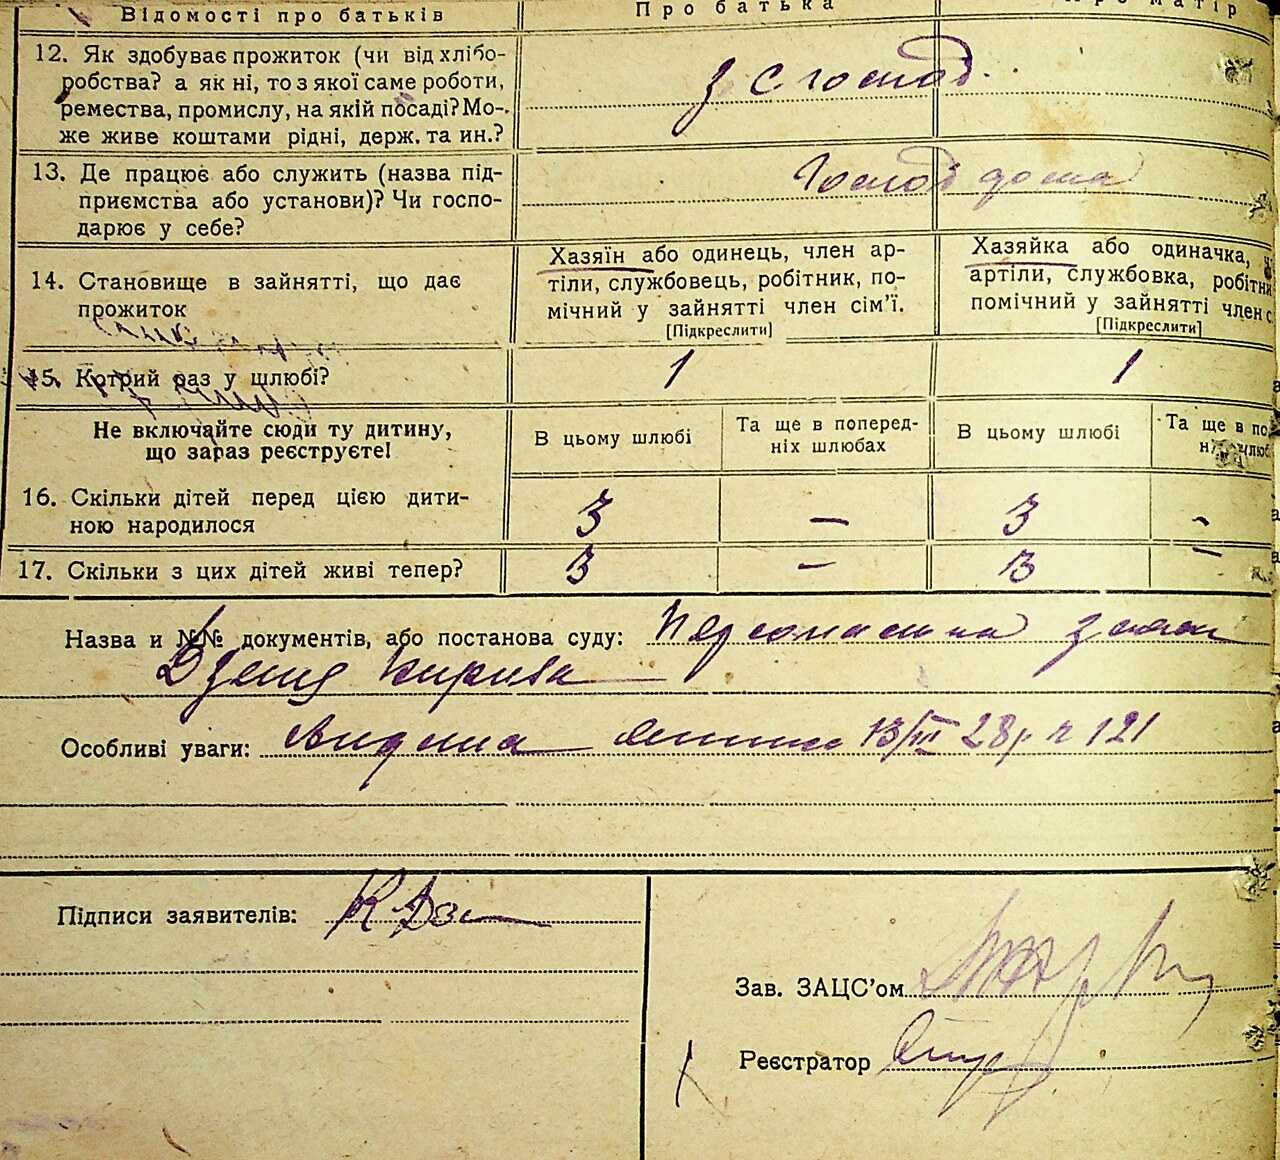 Відомості про батьків
Про батька
матір
12. Як здобуває прожиток (чи від хлібо-
робства? а як ні, то з якої саме роботи,
ремества, промислу, на якій посаді? Мо-
же живе коштами рідні, держ. та ин.?
з с господ.
13. Де працює або служить (назва під-
приємства або установи)? Чи госпо-
дарює у себе?
Господ дома
14. Становище в зайнятті, що дає
прожиток
Хазяїн або одинець, член ар-
тіли, службовець, робітник, по-
мічний у зайнятті член сім’ї.
[Підкреслити]
Хазяйка або одиначка,
артіли, службовка, робітни
помічний у зайнятті член с
[Підкреслити]
15. Котрий раз у шлюбі?
1
1
Не включайте сюди ту дитину,
що зараз реєструєте!
В цьому шлюбі
Та ще в поперед-
ніх шлюбах
В цьому шлюбі
Та ще в по
16. Скільки дітей перед цією дити-
ною народилося
3
–
3
-
17. Скільки з цих дітей живі тепер?
3
–
3
–
Назва и №№ документів, або постанова суду:
Особливі уваги: Видана 13/III 28р. 121
Підписи заявителів:
Зав. ЗАЦС’ом
Реєстратор